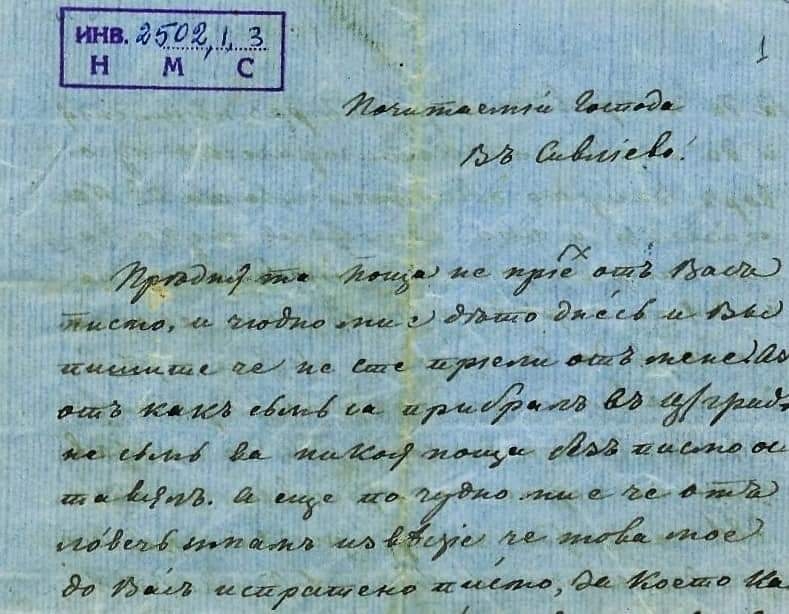 ИНВ. 2502,1,3
Н М С
1
Почитаемый Господа
Въ Сивлiево!
Прѣднята поща не прiехъ отъ Васъ
писмо, и чюдно ми е дѣто днесь и Вые
пишите че не сте прiели отъ мене. Азъ
отъ какъ съмъ са прибралъ въ Ц/градъ
не съмъ ва никоя поща безъ писмо ос
тавялъ. А еще по чудно ми е че отъ
Ловечь имамъ извѣщiе че това мое
до Васъ испратено писмо, за което ка